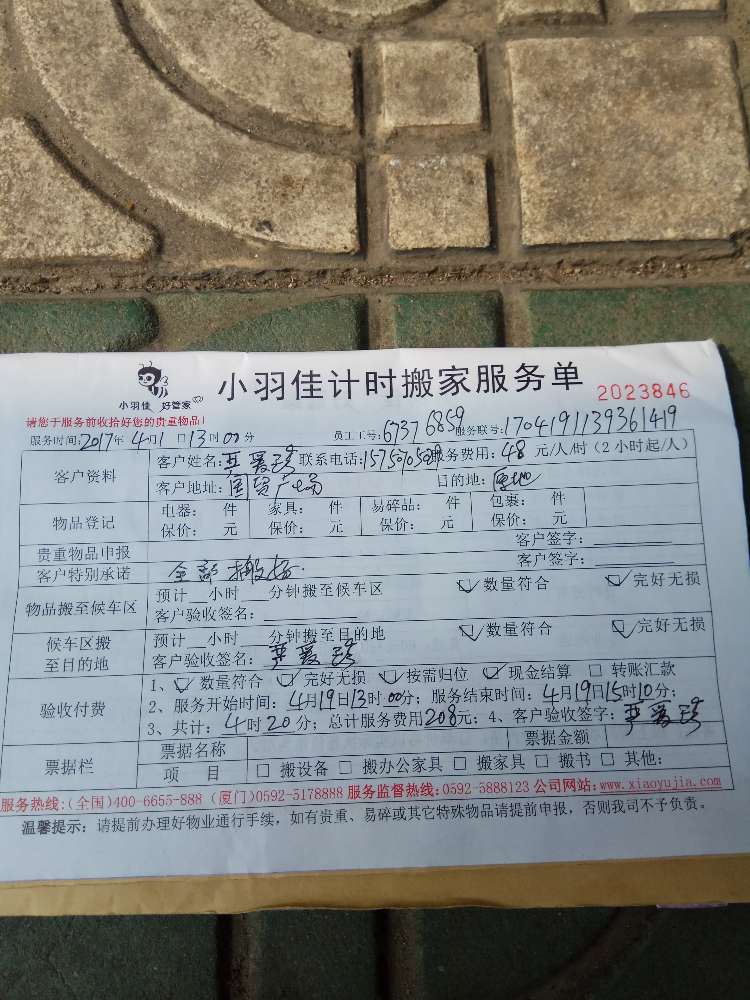 小羽佳 好管家
小羽佳计时搬家服务单 2023846
请您于服务前收拾好您的贵重物品!
服务时间:2017年4月1 日13时00分 员工工号:6737 6859 服务联号:1704191139361419
客户资料 客户姓名:严爱珍 联系电话: 服务费用:48 元/人/时(2小时起/人)
客户地址:国贸广场 目的地:原地
物品登记 电器: 件 家具: 件 易碎品: 件 包裹: 件
保价: 元 保价: 元 保价: 元 保价: 元
贵重物品申报 客户签字:
客户特别承诺 全部搬好. 客户签字:
物品搬至候车区 预计 小时 分钟搬至候车区 ☑数量符合 ☑完好无损
客户验收签名:
候车区搬至目的地 预计 小时 分钟搬至目的地 ☑数量符合 ☑完好无损
客户验收签名:严爱珍
验收付费 1、☑数量符合 ☑完好无损 ☑按需归位 ☑现金结算 □转账汇款
2、服务开始时间:4月19日13时00分;服务结束时间:4月19日15时10分;
3、共计:4时20分;总计服务费用208元;4、客户验收签字:严爱珍
票据栏 票据名称 票据金额
项 目 □搬设备 □搬办公家具 □搬家具 □搬书 □其他:
服务热线:(全国)400-6655-888 (厦门)0592-5178888 服务监督热线:0592-5888123 公司网站:www.xiaoyujia.com
温馨提示:请提前办理好物业通行手续,如有贵重、易碎或其它特殊物品请提前申报,否则我司不予负责。